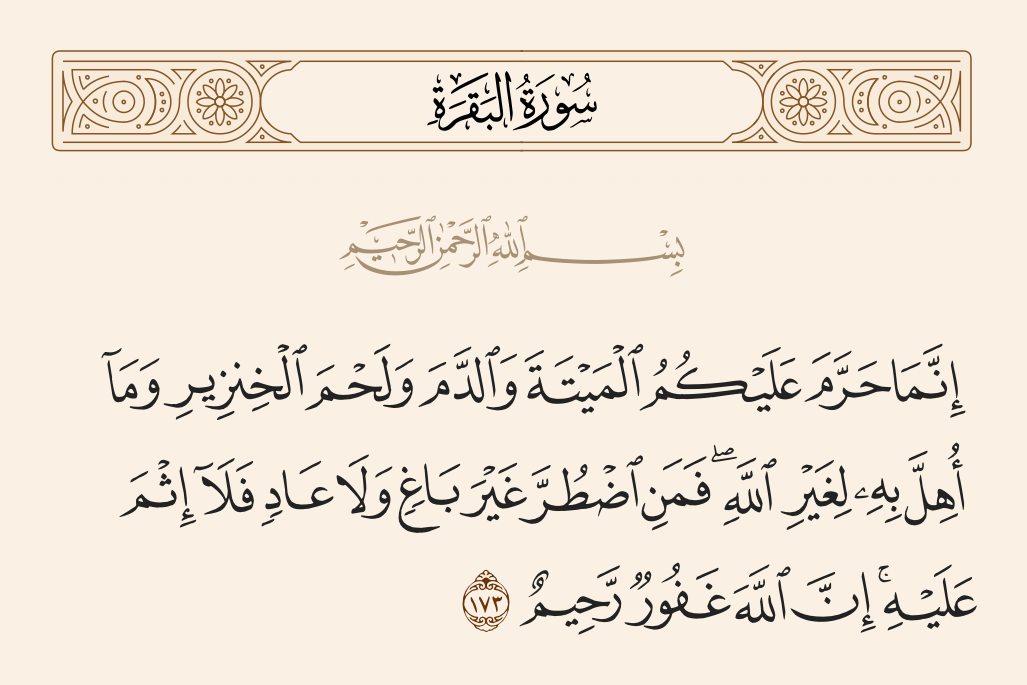 سُورَةُ البَقَرَةِ
بِسْمِ ٱللَّهِ ٱلرَّحْمَٰنِ ٱلرَّحِيمِ
إِنَّمَا حَرَّمَ عَلَيْكُمُ ٱلْمَيْتَةَ وَٱلدَّمَ وَلَحْمَ ٱلْخِنزِيرِ وَمَآ
أُهِلَّ بِهِۦ لِغَيْرِ ٱللَّهِ ۖ فَمَنِ ٱضْطُرَّ غَيْرَ بَاغٍ وَلَا عَادٍ فَلَآ إِثْمَ
عَلَيْهِ ۚ إِنَّ ٱللَّهَ غَفُورٌ رَّحِيمٌ ١٧٣